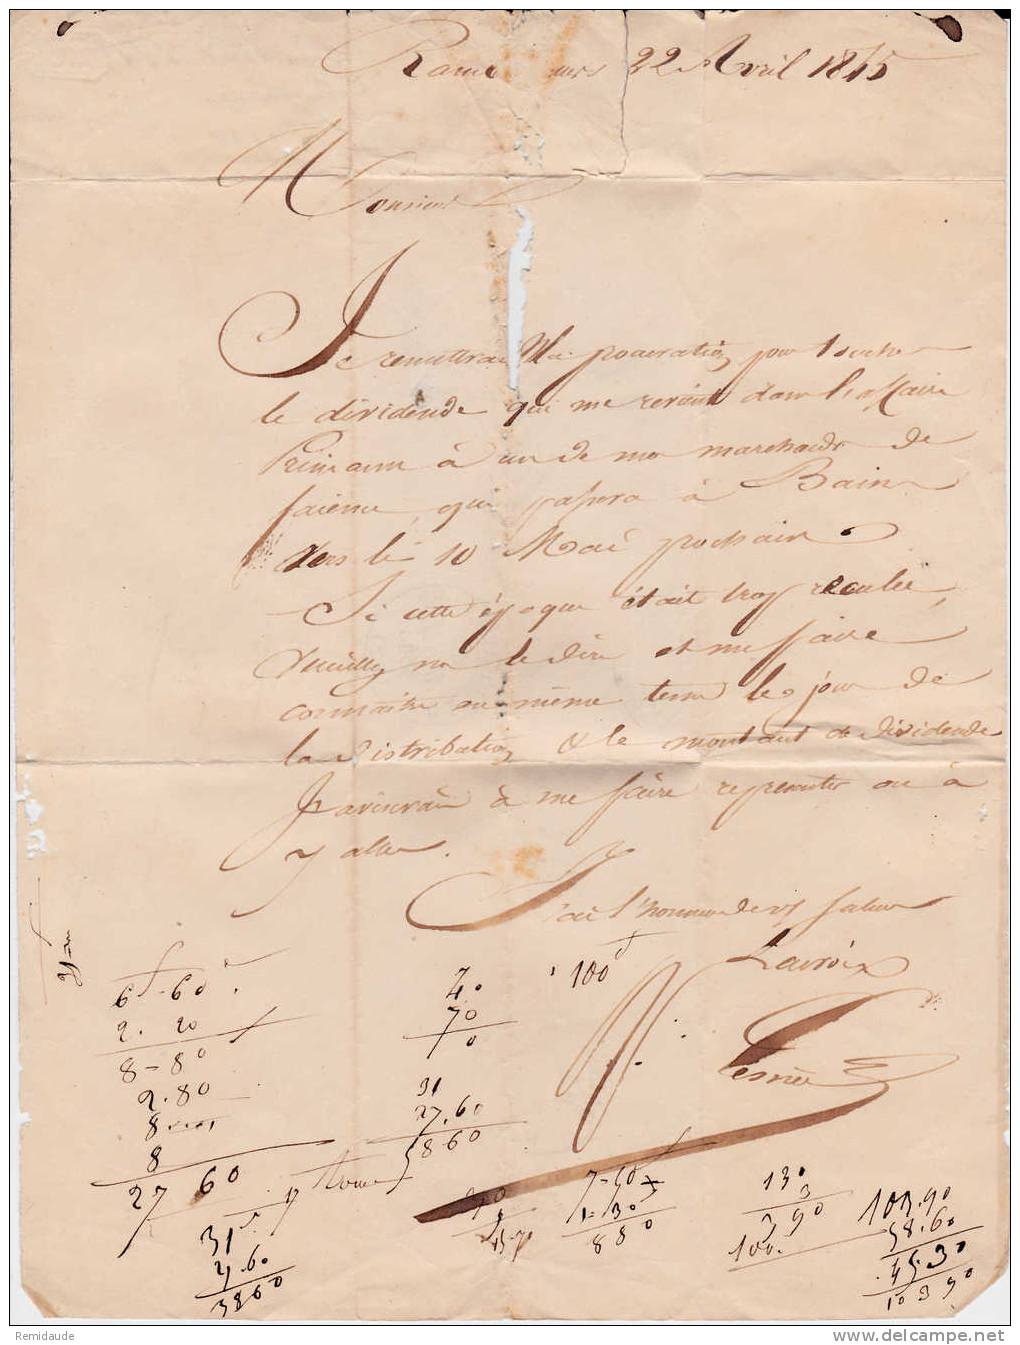 22 Avril 1845
Monsieur
Je remettrai Ma procuration pour toucher
le dividende qui me revient dans l'affaire
à un de mes marchands de
faience, qui passera à Bains
vers le 10 Mai prochain.
Si cette époque était trop reculée,
veuillez me le dire et me faire
connaître en même tems le jour de
la distribution & le montant de dividende
J'aviserai à me faire representer ou à
y aller.
J'ai l'honneur de vs saluer
Lacroix
6-60
2. 20
8-80
2.80
8
8
27 60
31
27.60
58.60
40
70
100
7-50
1-30
880
130
3
390
100.
103.90
58.60
45.30
103 90
Remidaude
www.delcampe.net